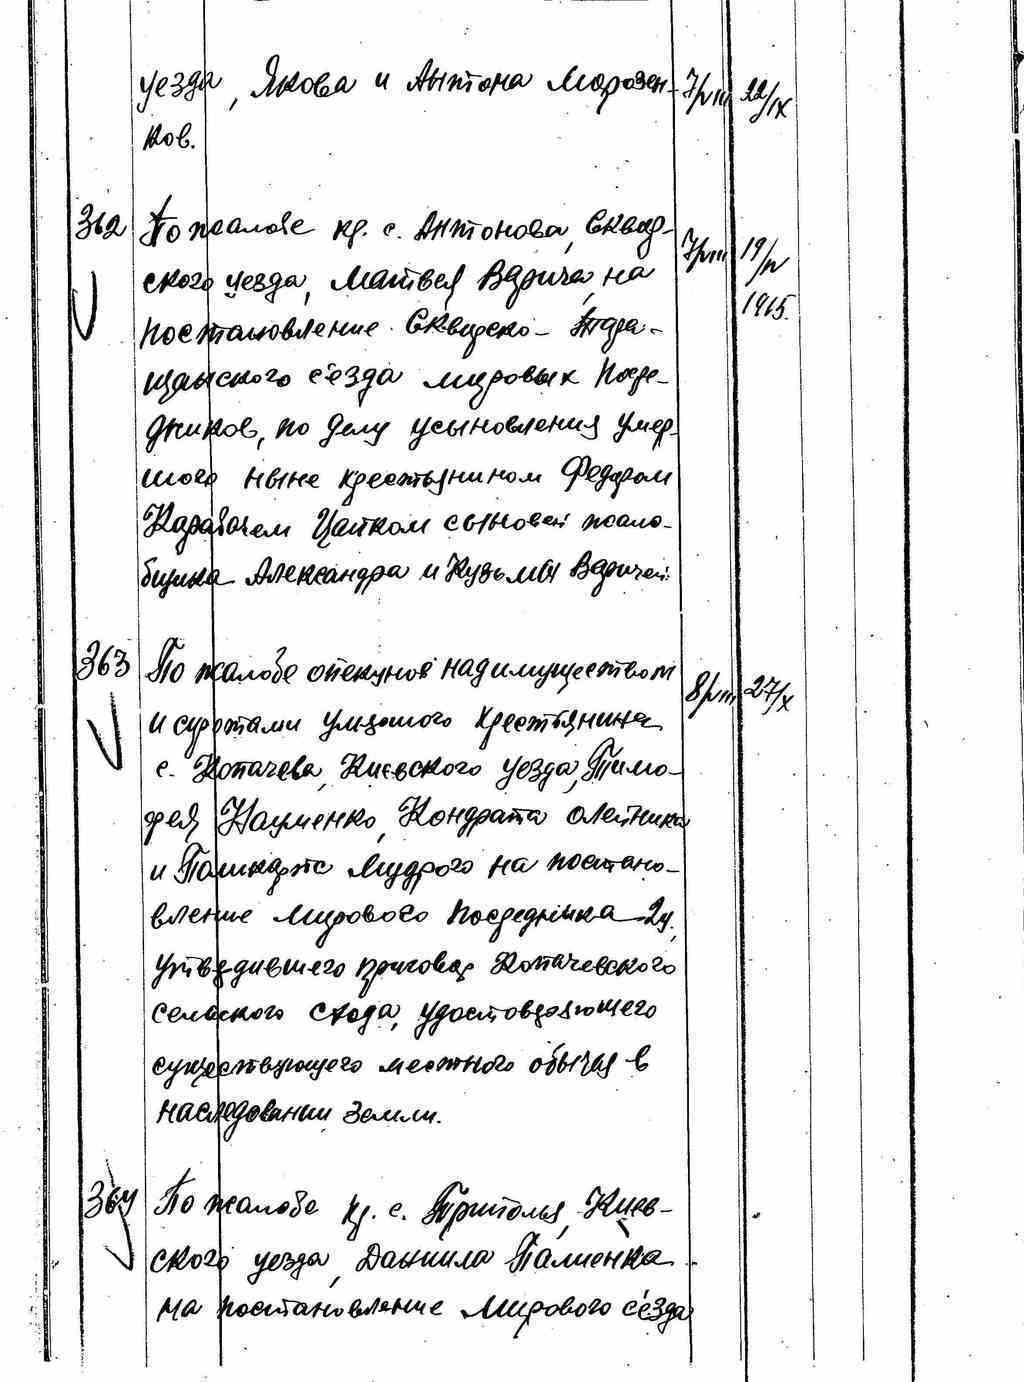 уезда, Якова и Антона Морозен- 7/VIII 22/IX
ков.
362 По жалобе кр. с. Антонова, Сквир-
ского уезда, Матвея Варича, на 7/VIII 19/IV
постановление Сквирско-Тара- 1915.
щанского с'езда мировых Посре-
дников, по делу усыновления умер-
шого ныне крестьянином Федором
Карабачем Цапком сыновей жало-
бщика Александра и Кузьмы Варичей.
363 По жалобе опекунов над имуществом 8/VIII 27/X
и сиротами умершого крестьянина
с. Копачева, Киевского уезда, Тимо-
фея Науменко, Кондрата Олейника
и Мудрого на постано-
вление Мирового Посредника 2у.,
утвердившего приговор Копачевского
сельского схода, удостоверяющего
существующего местного обычая в
наследовании земли.
364 По жалобе кр. с. Триполья, Киев-
ского уезда, Данила Палиенка
на постановление Мирового с'езда